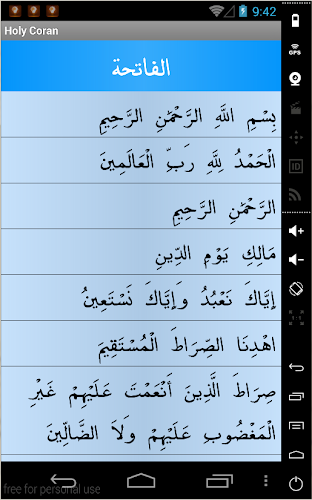 9:42
Holy Coran
GPS
الفاتحة
بِسْمِ اللَّهِ الرَّحْمَٰنِ الرَّحِيمِ
الْحَمْدُ لِلَّهِ رَبِّ الْعَالَمِينَ
الرَّحْمَٰنِ الرَّحِيمِ
مَالِكِ يَوْمِ الدِّينِ
إِيَّاكَ نَعْبُدُ وَإِيَّاكَ نَسْتَعِينُ
اهْدِنَا الصِّرَاطَ الْمُسْتَقِيمَ
صِرَاطَ الَّذِينَ أَنْعَمْتَ عَلَيْهِمْ غَيْرِ
الْمَغْضُوبِ عَلَيْهِمْ وَلَا الضَّالِّينَ
ID
1:1
free for personal use